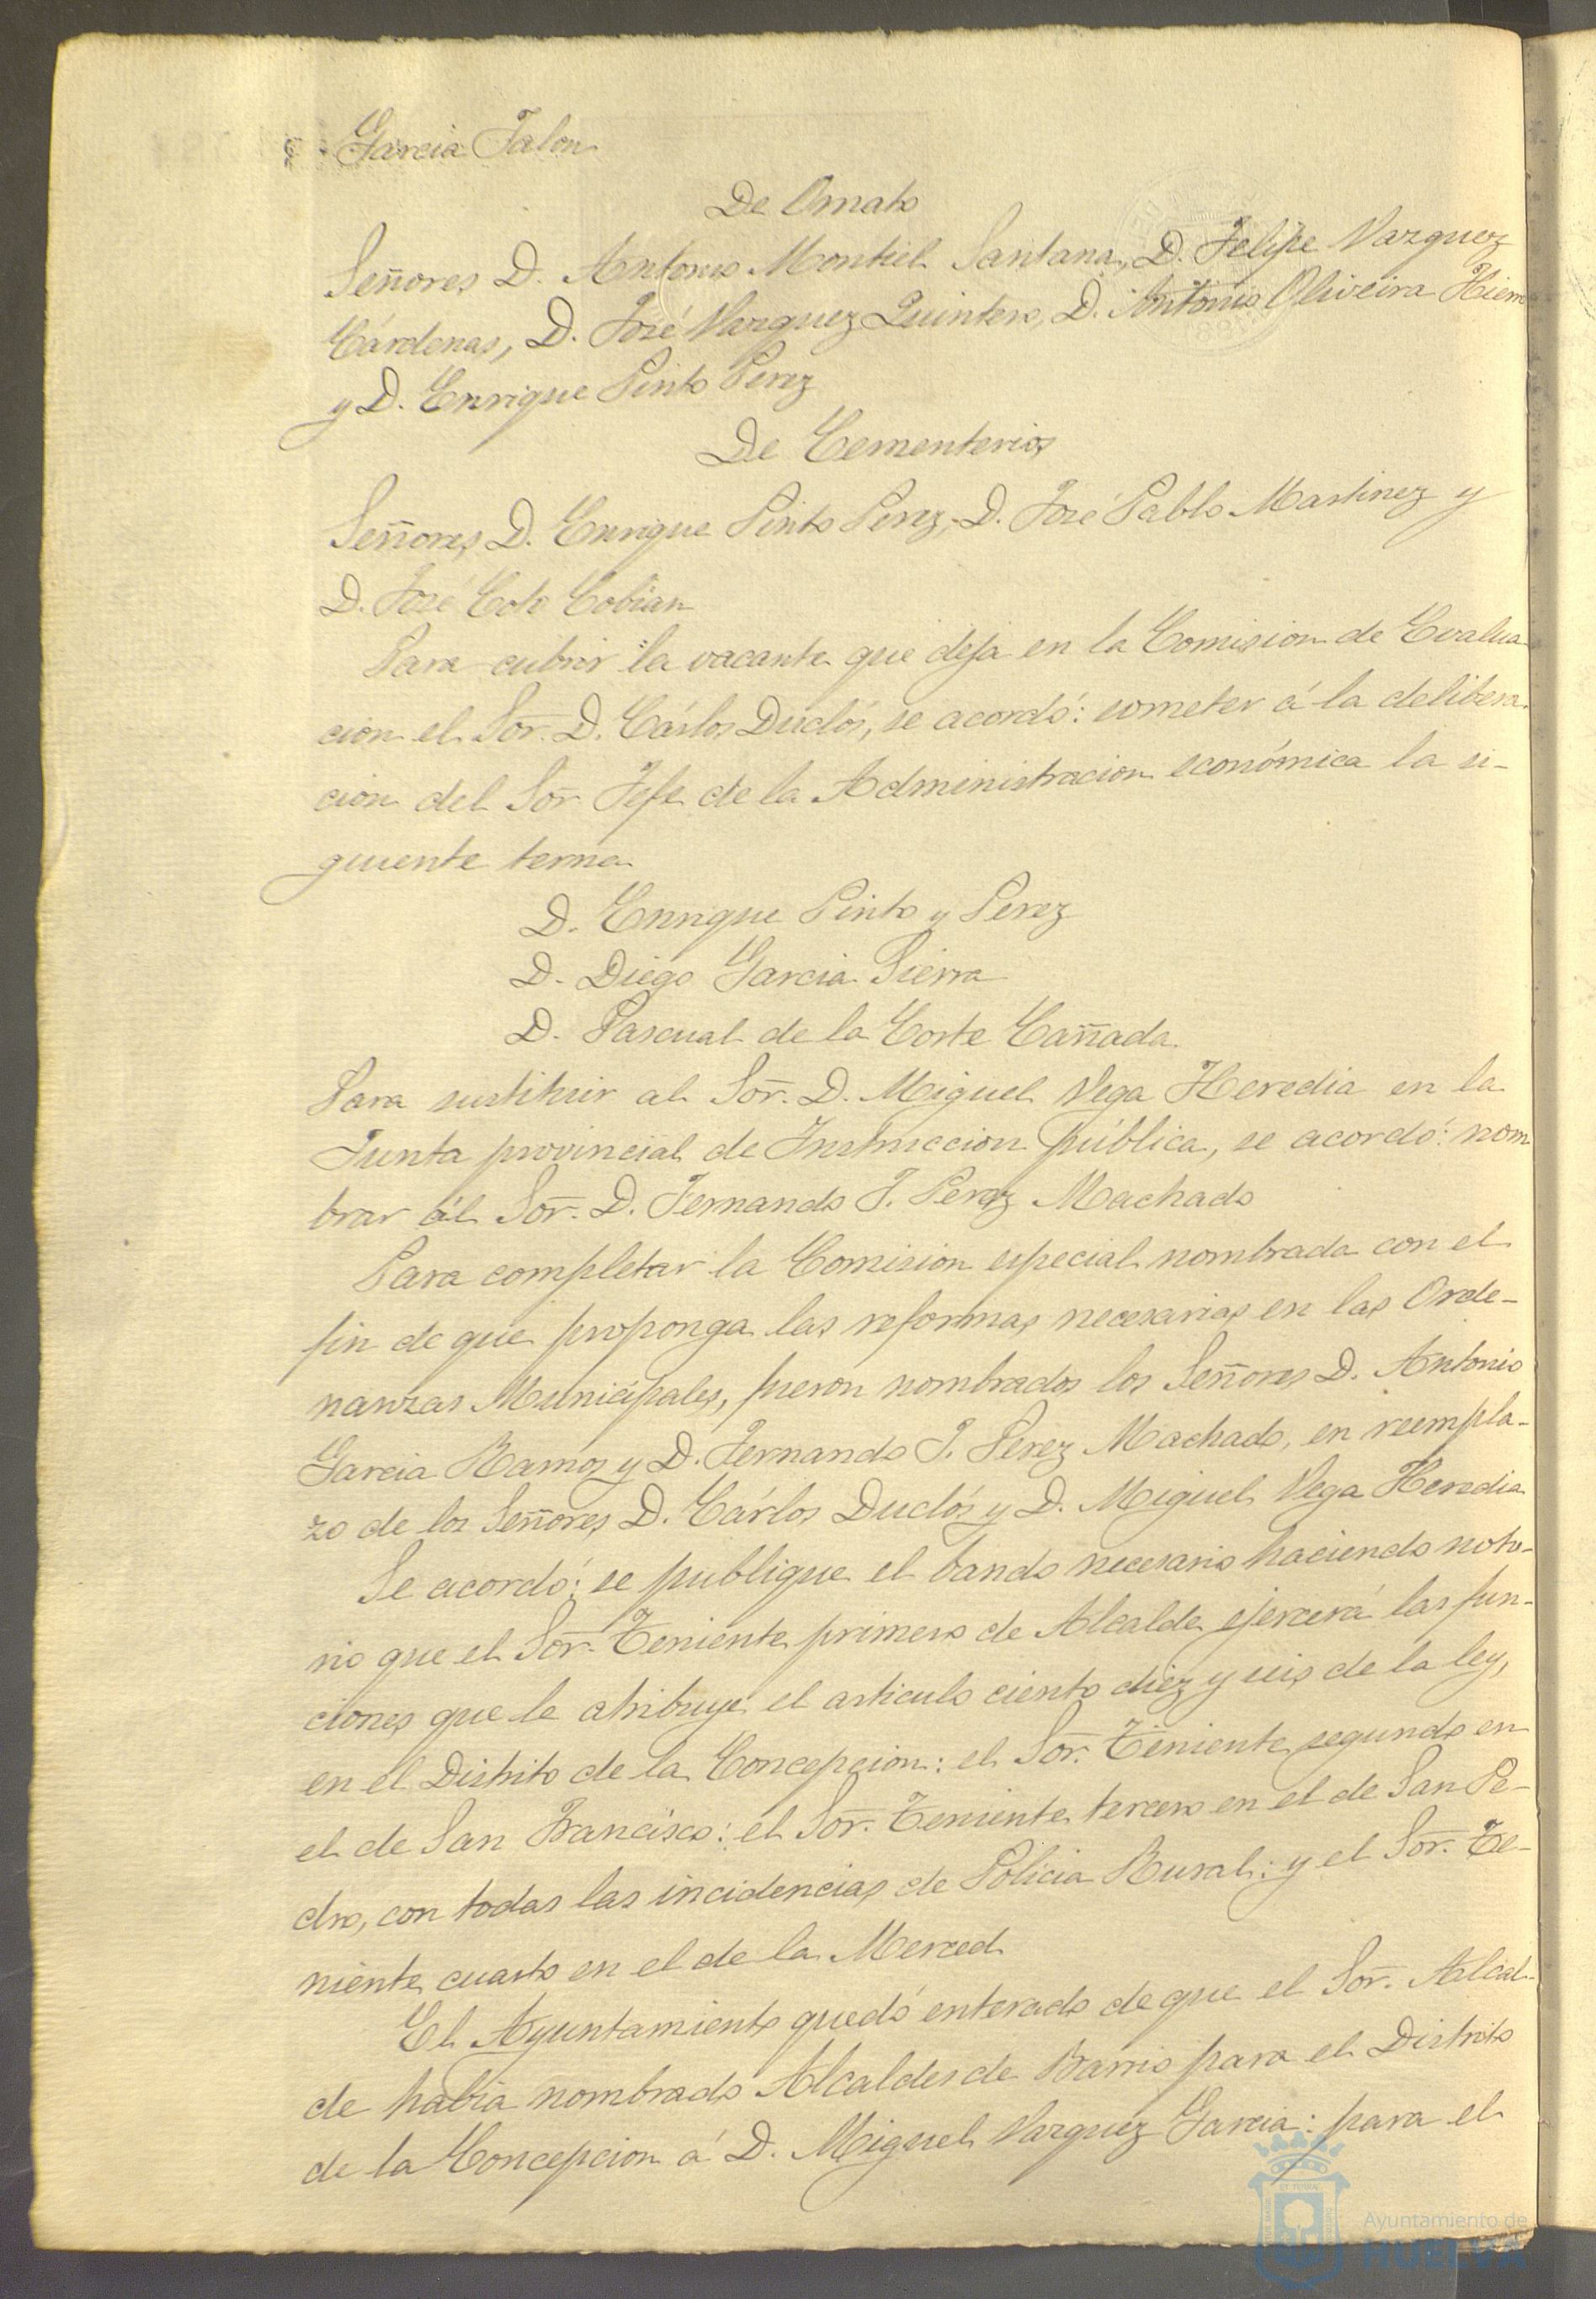 Garcia Talon
De Ornato
Señores D. Antonio Montiel Santana, D. Felipe Vazquez
Cárdenas, D. José Vazquez Quintero, D. Antonio Oliveira Hierro
y D. Enrique Pinto Perez
De Cementerios
Señores D. Enrique Pinto Perez, D. José Pablo Martinez y
D. José Coto Cobian
Para cubrir la vacante que deja en la Comision de Evalua-
cion el Sor. D. Cárlos Duclós, se acordó: someter á la delibera-
cion del Sor Jefe de la Administracion económica la si-
guiente terna
D. Enrique Pinto y Perez
D. Diego Garcia Sierra
D. Pascual de la Corte Cañada
Para sustituir al Sor. D. Miguel Vega Heredia en la
Junta provincial de Instruccion pública, se acordó: nom
brar ál Sor. D. Fernando J. Perez Machado
Para completar la Comision especial nombrada con el
fin de que proponga las reformas necesarias en las Orde-
nanzas Municipales, fueron nombrados los Señores D. Antonio
Garcia Ramos y D. Fernando J. Perez Machado, en reempla-
zo de los Señores D. Cárlos Duclós y D. Miguel Vega Heredia
Se acordó: se publique el bando necesario haciendo noto-
rio que el Sor. Teniente primero de Alcalde ejercerá las fun-
ciones que le atribuye el articulo ciento diez y seis de la ley,
en el Distrito de la Concepcion: el Sor. Teniente segundo en
el de San Francisco: el Sor. Teniente tercero en el de San Pe-
dro, con todas las incidencias de Policia Rural: y el Sor. Te-
niente cuarto en el de la Merced
El Ayuntamiento quedó enterado de que el Sor. Alcal-
de habia nombrado Alcaldes de Barrio para el Distrito
de la Concepcion á D. Miguel Vazquez Garcia: para el
Ayuntamiento de
HUELVA